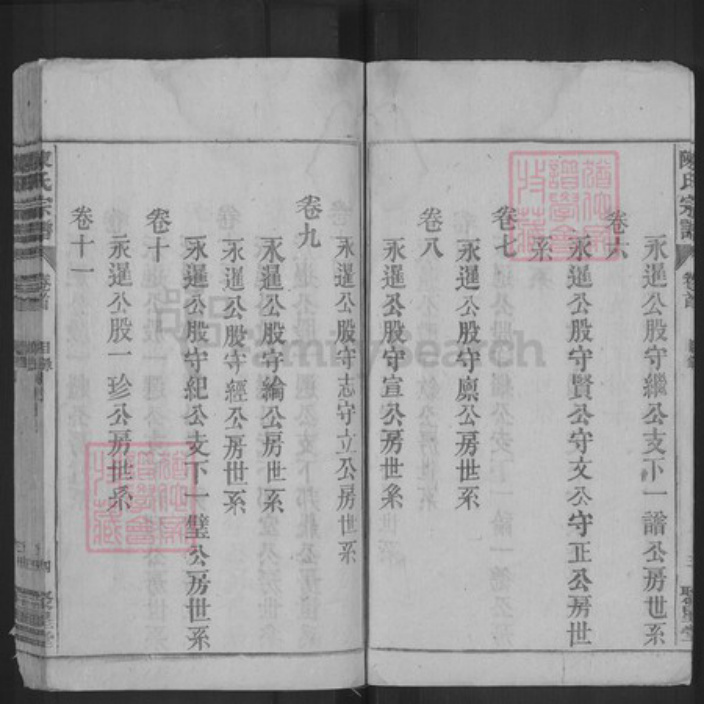 陳氏宗譜
卷首
聚星堂
永暹公股守繼公支下一譜公房世系
卷六
永暹公股守賢公守文公守正公房世
系
卷七
永暹公股守廪公房世系
卷八
永暹公股守宣公房世系
永暹公股守志守立公房世系
卷九
永暹公股守綸公房世系
永暹公股守經公房世系
永暹公股守紀公支下一璧公房世系
卷十
永暹公股一珍公房世系
卷十一
陳氏宗譜
卷首
目錄
四
聚星堂
FamilySearch